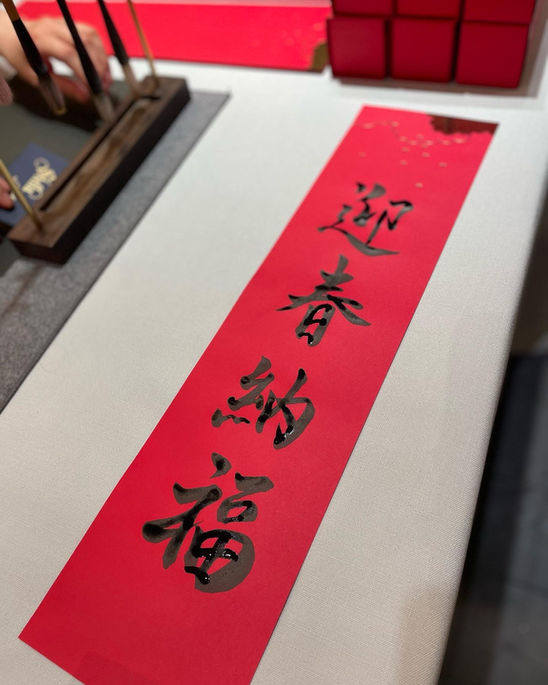 迎春納福